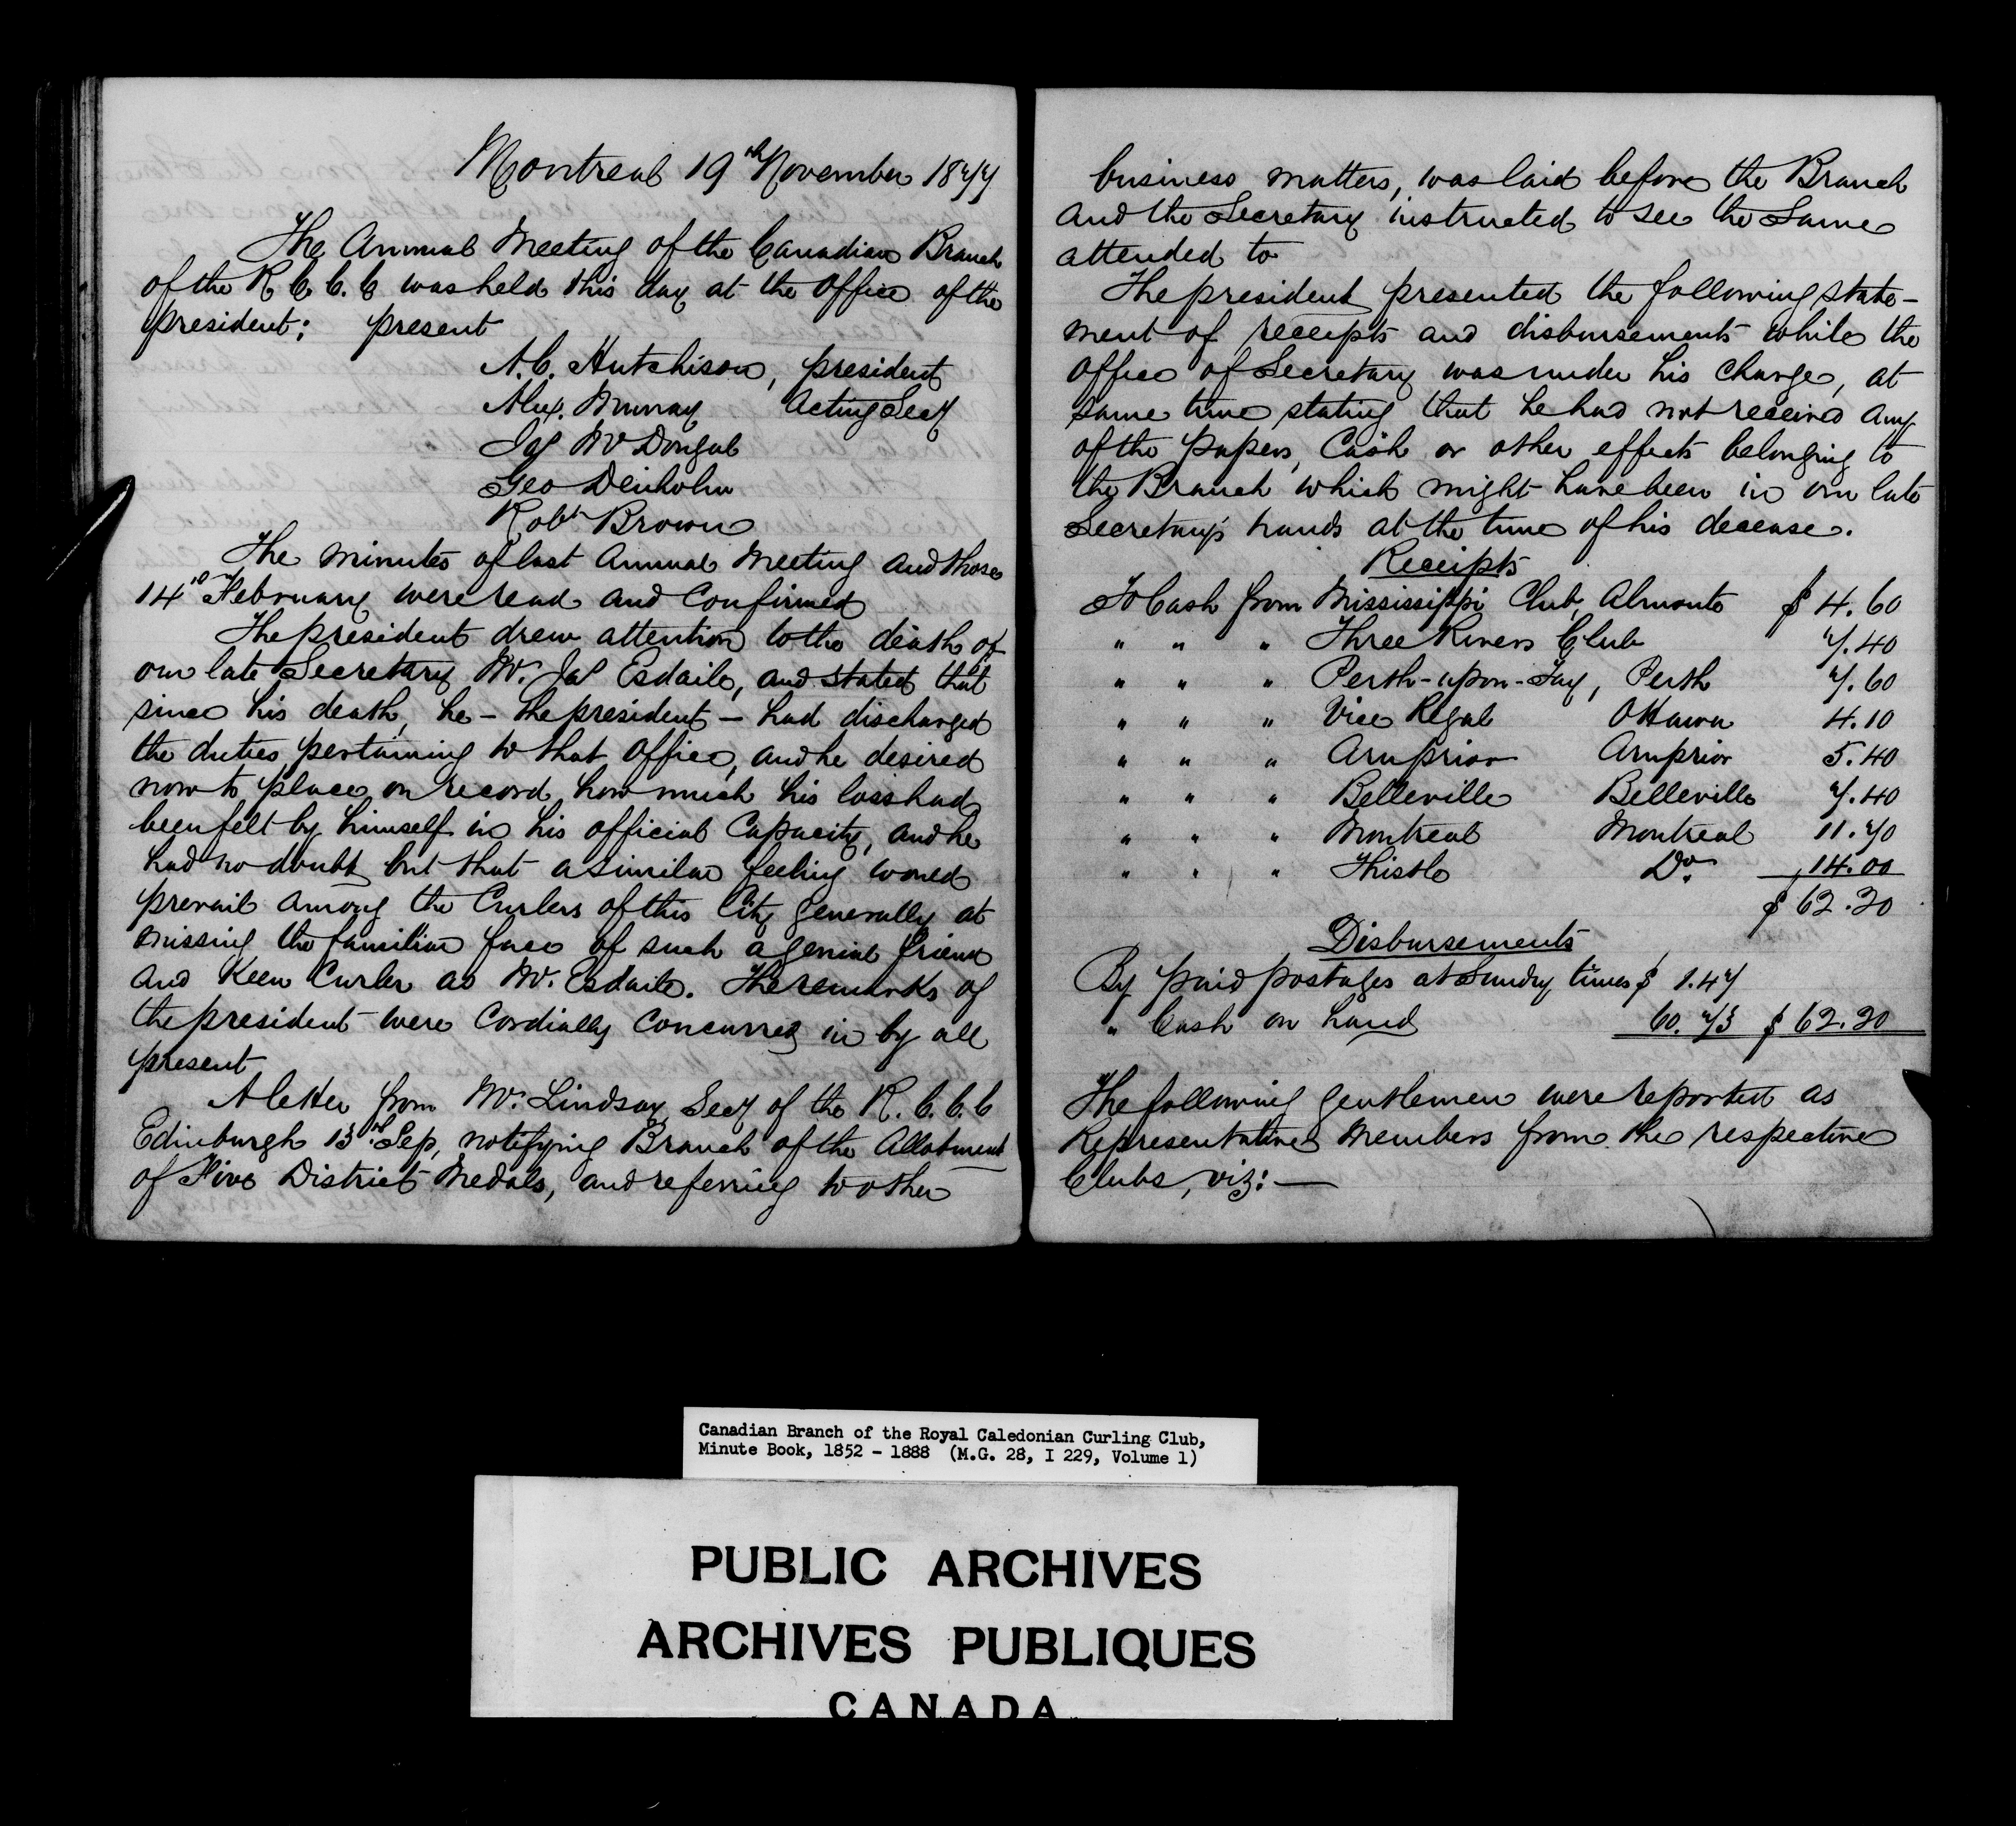 Montreal 19th November 1877
The Annual Meeting of the Canadian Branch
of the R C. C. C was held this day at the office of the
president; present
A. C. Hutchison, president
Alex. Murray Acting Secy
Jas McDougall
Geo Denholm
Robt Brown
The minutes of last Annual Meeting and those
14th February were read and Confirmed
The president drew attention to the death of
our late Secretary Mr. Jas Esdaile, and stated that
since his death, he - the president - had discharged
the duties pertaining to that office, and he desired
now to place on record how much his loss had
been felt by himself in his official Capacity, and he
had no doubt but that a similar feeling would
prevail among the Curlers of this City generally at
missing the familiar face of such a genial friend
and Keen Curler as Mr. Esdaile. The remarks of
the president were Cordially Concurred in by all
present
A letter from Mr. Lindsay Secy of the R. C. C. C
Edinburgh 13th Sep, notifying Branch of the Allotment
of Five District Medals, and referring to other
business matters, was laid before the Branch
and the Secretary instructed to see the Same
attended to
The president presented the following state-
ment of receipts and disbursements while the
office of Secretary was under his Charge, at
same time stating that he had not received any
of the papers, Cash or other effects belonging to
the Branch which might have been in our late
Secretary's hands at the time of his decease.
Receipts
To Cash from Mississippi Club, Almonte $ 4.60
" " " Three Rivers Club 7.40
" " " Perth-upon-Tay, Perth 7.60
" " " Vice Regal Ottawa 4.10
" " " Arnprior Arnprior 5.40
" " " Belleville Belleville 7.40
" " " Montreal Montreal 11.70
" " " Thistle Do. 14.00
$ 62.20
Disbursements
By paid postages at Sundry times $ 1.47
" Cash on hand 60.73 $ 62.20
The following gentlemen were reported as
Representative Members from the respective
Clubs, viz: —
Canadian Branch of the Royal Caledonian Curling Club,
Minute Book, 1852 - 1888 (M.G. 28, I 229, Volume 1)
PUBLIC ARCHIVES
ARCHIVES PUBLIQUES
CANADA